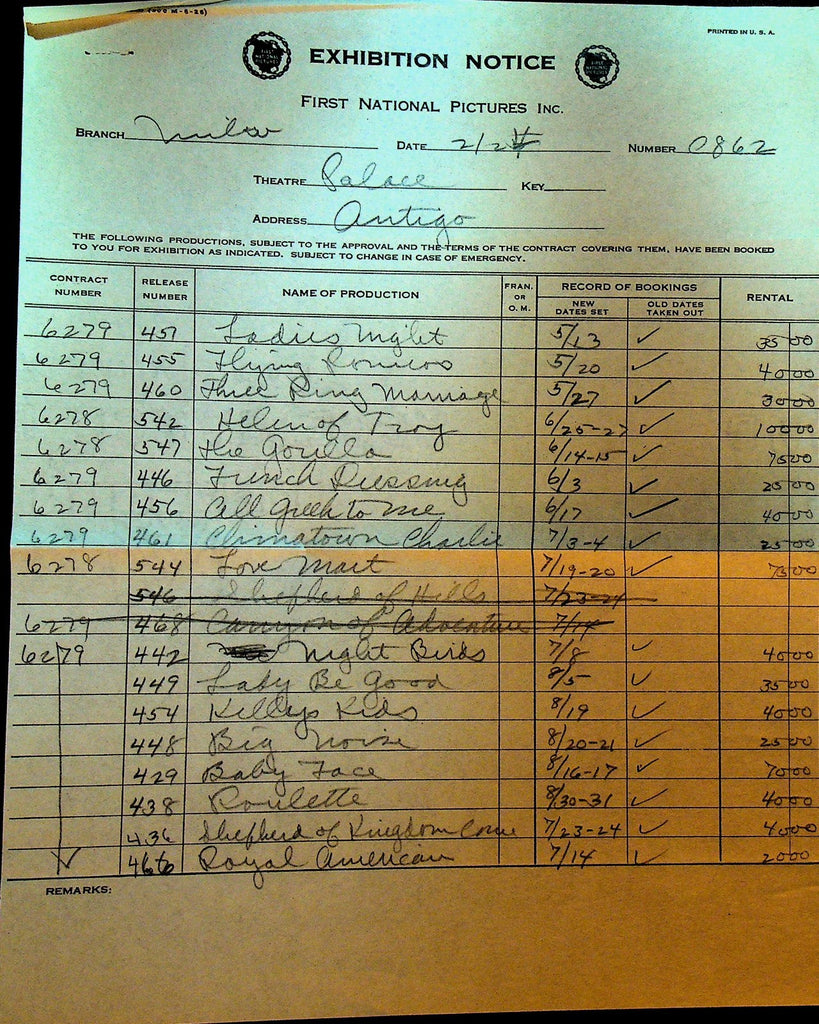 PRINTED IN U. S. A.
EXHIBITION NOTICE
FIRST NATIONAL PICTURES INC.
BRANCH Milw DATE 2/2 NUMBER 0862
THEATRE Palace KEY
ADDRESS Antigo
THE FOLLOWING PRODUCTIONS, SUBJECT TO THE APPROVAL AND THE TERMS OF THE CONTRACT COVERING THEM, HAVE BEEN BOOKED
TO YOU FOR EXHIBITION AS INDICATED. SUBJECT TO CHANGE IN CASE OF EMERGENCY.
CONTRACT NUMBER RELEASE NUMBER NAME OF PRODUCTION FRAN. OR O. M. RECORD OF BOOKINGS NEW DATES SET OLD DATES TAKEN OUT RENTAL
6279 451 Ladies Night 5/13 ✓ 35 00
6279 455 Flying Romeos 5/20 ✓ 40 00
6279 460 Three Ring Marriage 5/27 ✓ 30 00
6278 542 Helen of Troy 6/25-27 ✓ 100 00
6278 547 the Gorilla 6/14-15 ✓ 75 00
6279 446 French Dressing 6/3 ✓ 25 00
6279 456 All Greek to me 6/17 ✓ 40 00
6279 461 Chinatown Charlie 7/3-4 ✓ 25 00
6278 544 Love Mart 7/19-20 ✓ 75 00
546 Shepherd of Hills 7/23-24
6279 468 Canyon of Adventure 7/14
6279 442 Night Birds 7/8 ✓ 40 00
449 Lady Be Good 8/5 ✓ 35 00
454 Kellys Kids 8/19 ✓ 40 00
448 Big Noise 8/20-21 ✓ 25 00
429 Baby Face 8/16-17 ✓ 70 00
438 Roulette 8/30-31 ✓ 40 00
436 Shepherd of Kingdom Come 7/23-24 ✓ 40 00
466 Royal American 7/14 ✓ 20 00
REMARKS: